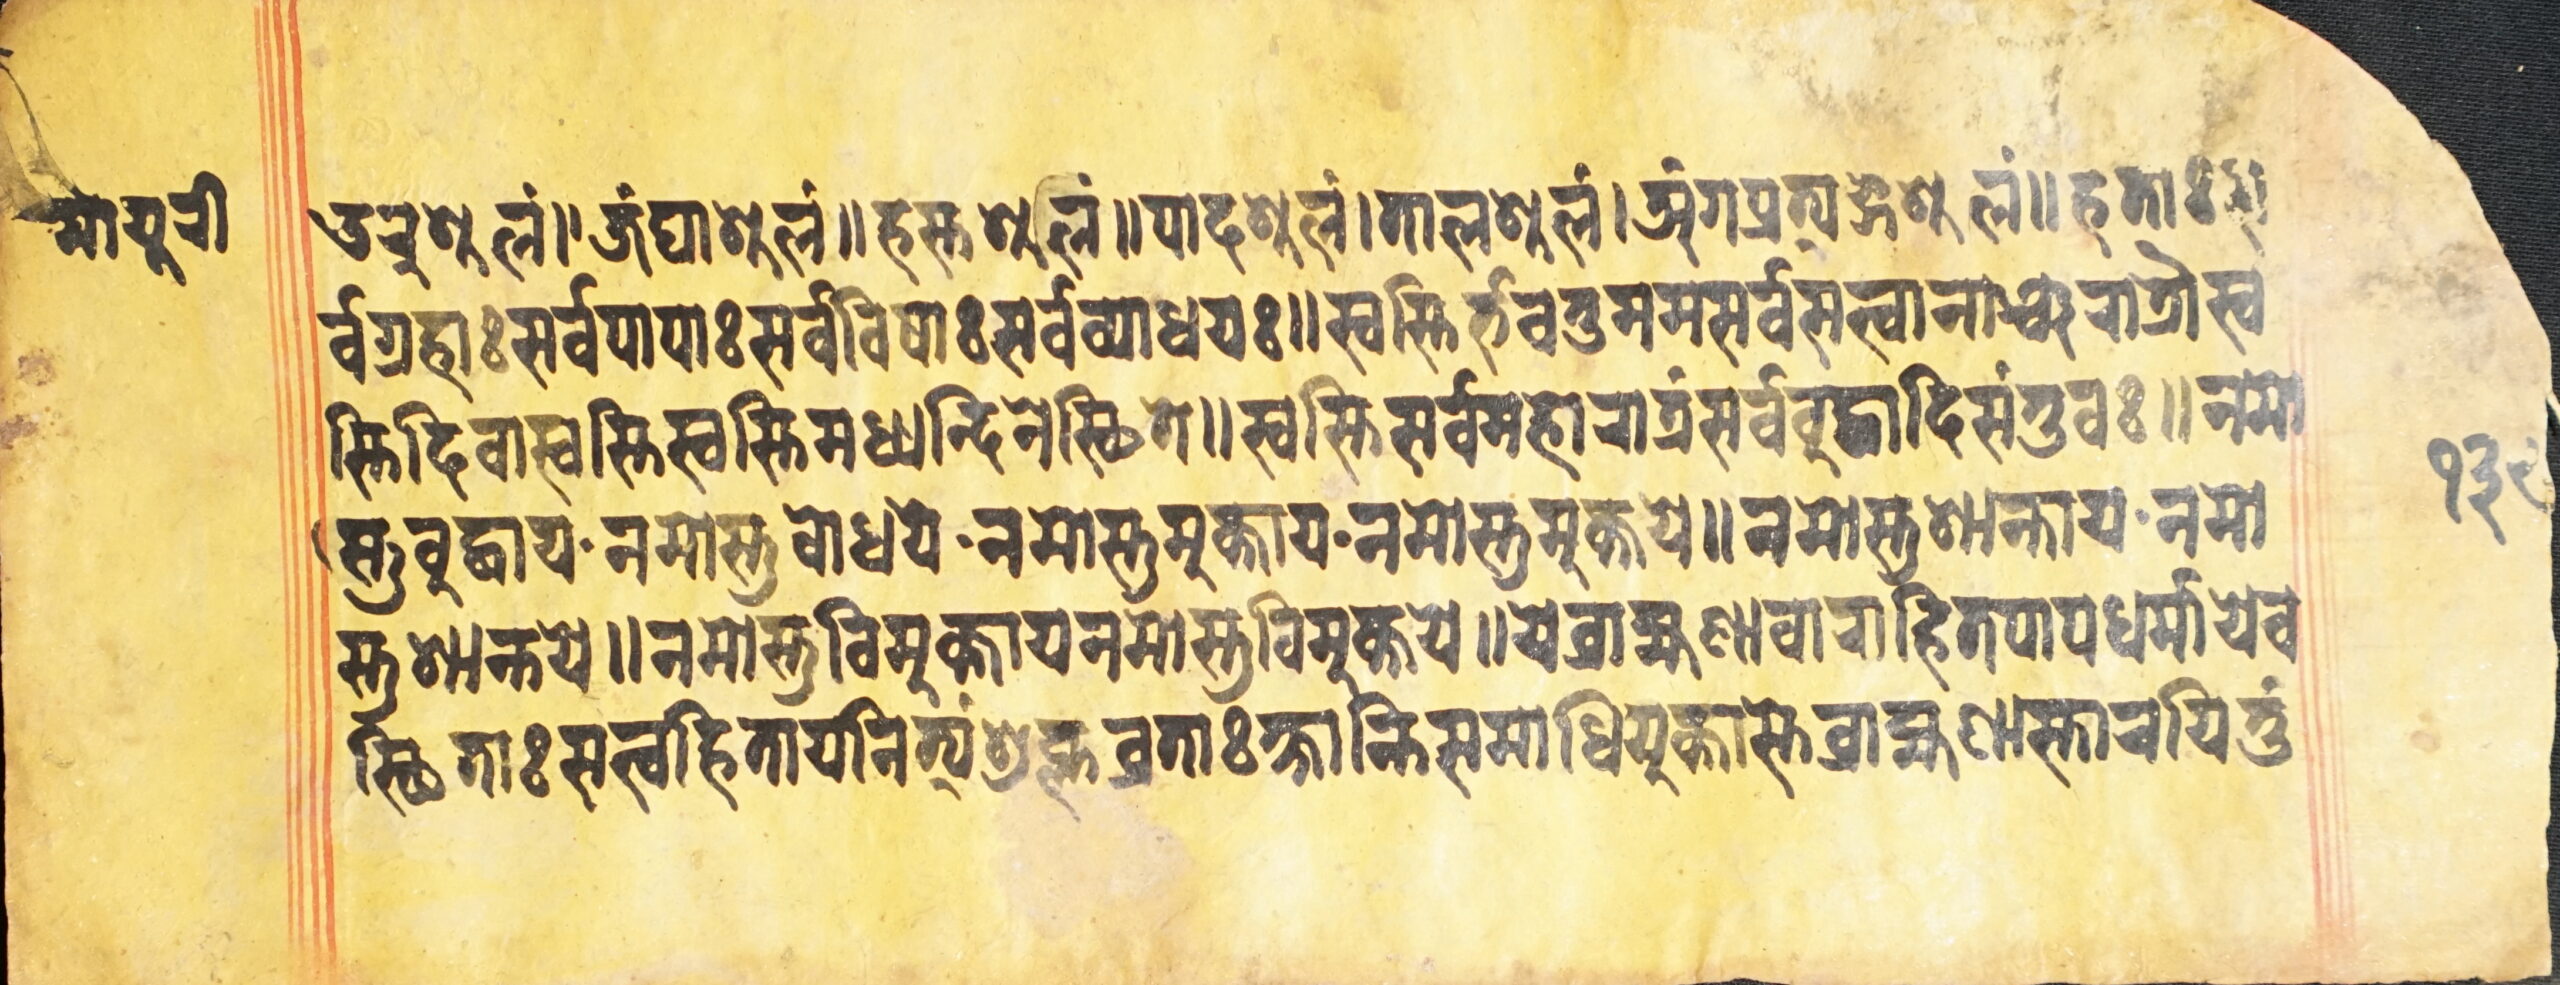 मायुरी
उरुशुलं॥जंघाशुलं॥हस्तशुलं॥पादशुलं।तालशुलं।अंगप्रत्यङ्गेशुलं॥हताःस
र्वग्रहाःसर्वपापाःसर्वविषाःसर्वव्याधयः॥स्वस्तिर्भवतुममसर्वसत्वानाञ्चरात्रौस्व
स्तिदिवास्वस्तिस्वस्तिमध्यन्दिनेस्थिते॥स्वस्तिसर्वमहोरात्रंसर्वबुद्धादिसंतुवः॥नमो
स्तुबुद्धाय·नमोस्तुबोधये·नमोस्तुमुक्ताय·नमोस्तुमुक्तये॥नमोस्तुशान्ताय·नमो
स्तुशान्तये॥नमोस्तुविमुक्तायनमोस्तुविमुक्तये॥येब्राह्मणावाराहितपापधर्मायेव
स्थिताःसत्वहितायनित्यंशुक्लव्रताःक्षान्तिसमाधियुक्तास्तेब्राह्मणास्तारयितुं